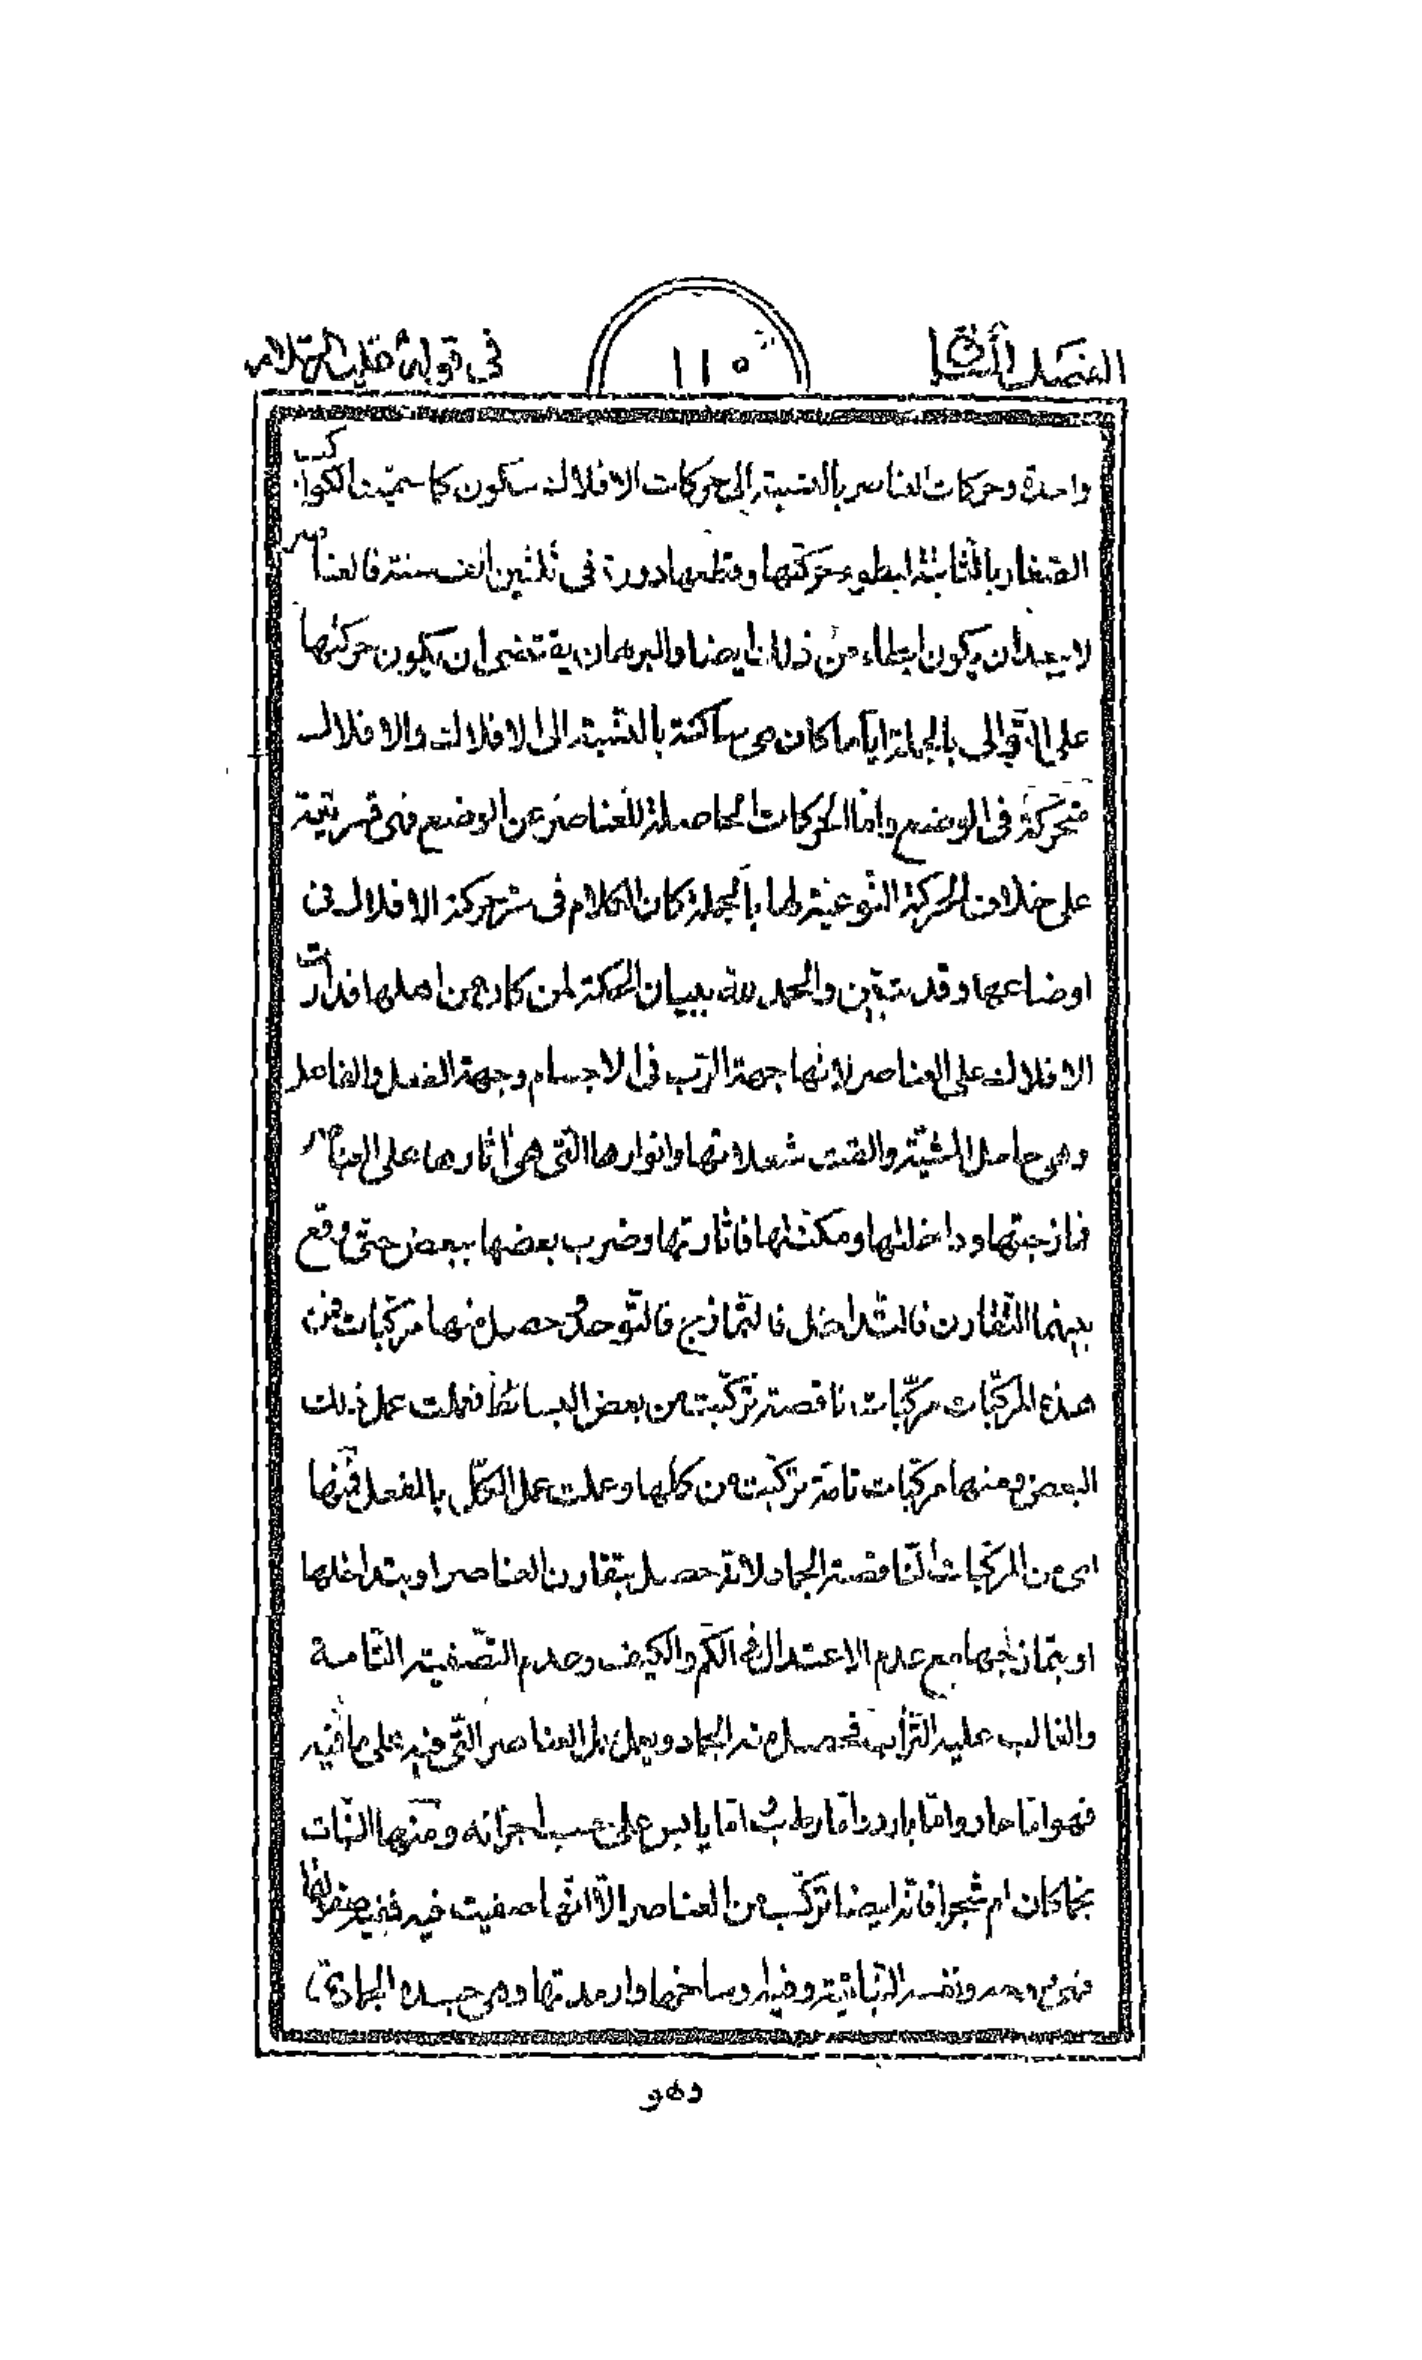 الفصل الثانی
١١٥
فی قوله علیه السلام
واحدة وحركات العناصر بالنسبة إلی حركات الافلاك سكون كما سمیّنا الكواكب
الصغار بالثابتة لبطوء حركتها وقطعها دورة فی ثلثین الف سنة فالعناصر
لا یبعد ان یكون ابطاء من ذلك ایضا والبرهان یقتضی ان یكون حركتها
علی التّوالی بالجملة ایّاً ما كان هی ساكنة بالنّسبة الی الافلاك والافلاك
متحرّكة فی الوضع وامّا الحركات الحاصلة للعناصر عن الوضع فهی قسریّة
علی خلاف الحركة النّوعیّة لها بالجملة كان الكلام فی سرّ حركة الافلاك فی
اوضاعها وقد تبیّن والحمد لله ببیان الحكمة لمن كان من اهلها فدارت
الافلاك علی العناصر لانّها جهة الرّب فی الاجسام وجهة الفعل والفاعل
وهی حامل المشیّة والقت شعلاتها وانوارها الّتی هی آثارها علی العناصر
فمازجتها وداخلتها ومكثت لها فاثارتها وضرب بعضها ببعض حتّی وقع
بینهما التّقارن فالتّداخل فالتّمازج فالتّوحّد وحصل منها مركّبات فمن
هذه المركّبات مركّبات ناقصة تركّبت من بعض البسائط فعملت عمل ذلك
البعض ومنها مركّبات تامّة تركّبت من كلها وعملت عمل الكلّ بالفعل فمنها
ای من المركّبات النّاقصة الجماد لانّه حصل بتقارن العناصر او بتداخلها
او بتمازجها مع عدم الاعتدال فی الكمّ والكیف وعدم التّصفیة التّامة
والغالب علیه التّراب فحصل منه الجماد ویعمل بالعناصر الّتی فیه علی ما فیه
فهو امّا حار وامّا بارد وامّا رطب وامّا یابس علی حسب اجزائه ومنها النّبات
نجما كان ام شجرا فانّه ایضا تركّب من العناصر الّا انّها صفیت فیه ففیه صفوها
فهو روحه ونفسه النّباتیّة وفیه وساخها وارمدتها وهی جسده الجمادیّ
وهو